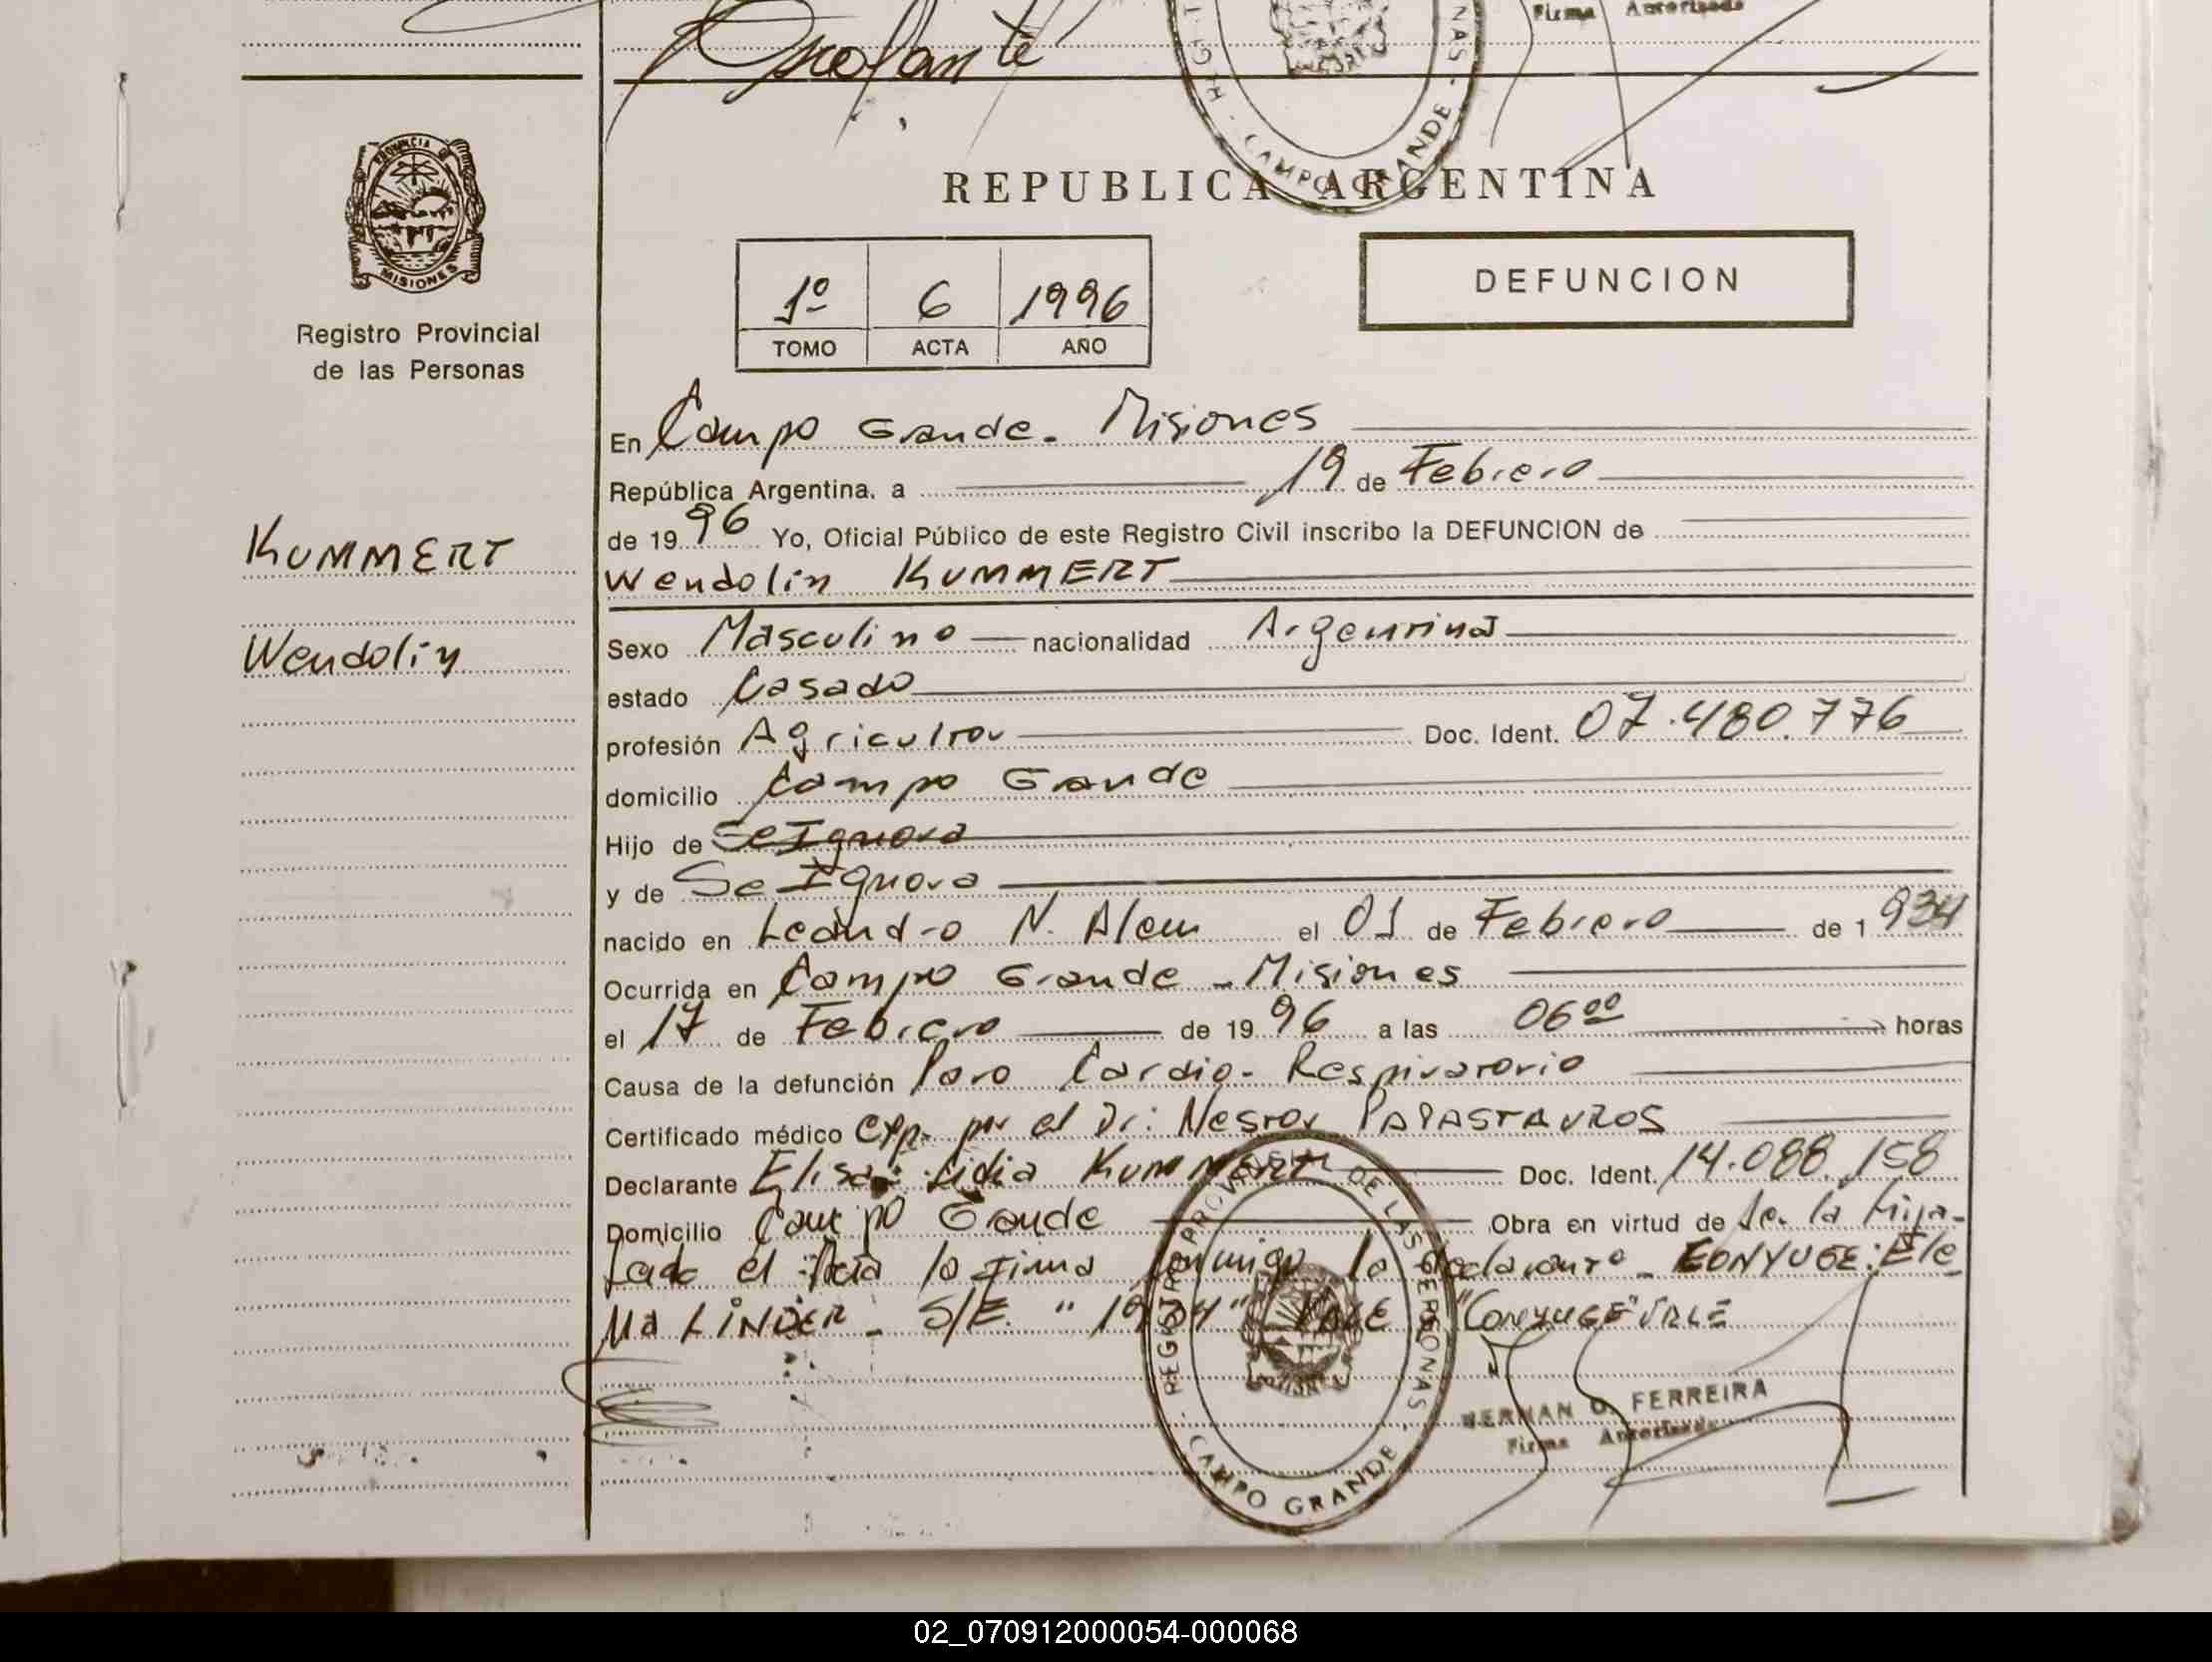 Escalante
Firma Autorizada
CAMPO GRANDE
PROVINCIA
MISIONES
Registro Provincial
de las Personas
KUMMERT
Wendolin
REPUBLICA ARGENTINA
1º 6 1996
TOMO ACTA AÑO
DEFUNCION
En Campo Grande - Misiones
República Argentina, a 19 de Febrero
de 1996 Yo, Oficial Público de este Registro Civil inscribo la DEFUNCION de
Wendolin KUMMERT
Sexo Masculino nacionalidad Argentina
estado Casado
profesión Agricultor Doc. Ident. 07.480.776
domicilio Campo Grande
Hijo de Se Ignora
y de Se Ignora
nacido en Leandro N. Alem el 01 de Febrero de 1934
Ocurrida en Campo Grande - Misiones
el 17 de Febrero de 1996 a las 06 00 horas
Causa de la defunción Paro Cardio-Respiratorio
Certificado médico exp. por el Dr: Nestor PAPASTAVROS
Declarante Elisa Lidia KUMMERT Doc. Ident. 14.088.158
Domicilio Campo Grande Obra en virtud de Ser la Hija-
Leida el Acta la Firma conmigo la declarante - CONYUGE: Ele
na LINDER - S/E. "1934" VALE "CONYUGE" VALE
REGISTRO PROVINCIAL DE LAS PERSONAS
CAMPO GRANDE
HERNAN O. FERREIRA
Firma Autorizada
02_070912000054-000068